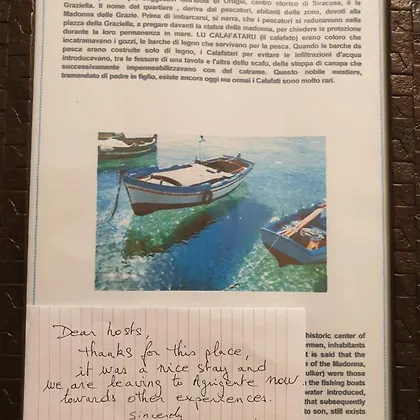 Ortigia, centro storico di Siracusa, è la
Graziella. Il nome del quartiere , deriva dai pescatori, abitanti della zona, devoti alla
Madonna delle Grazie. Prima di imbarcarsi, si narra, che i pescatori si radunavano nella
piazza della Graziella, a pregare davanti la statua della madonna, per chiedere la protezione
durante la loro permanenza in mare. LU CALAFATARU (il calafato) erano coloro che
incatramavano i gozzi, le barche di legno che servivano per la pesca. Quando le barche da
pesca erano costruite solo di legno, i Calafatari per evitare le infiltrazioni d'acqua
introducevano, tra le fessure di una tavola e l'altra dello scafo, della stoppa di canapa che
successivamente impermeabilizzavano con del catrame. Questo nobile mestiere,
tramandato di padre in figlio, esiste ancora oggi ma ormai i Calafati sono molto rari.
Dear hosts,
thanks for this place,
it was a nice stay and
we are leaving to Agrigente now
towards other experiences.
Sincerely
historic center of
rmen, inhabitants
t is said that the
e of the Madonna,
ulker) were those
n the fishing boats
water introduced,
that subsequently
to son, still exists